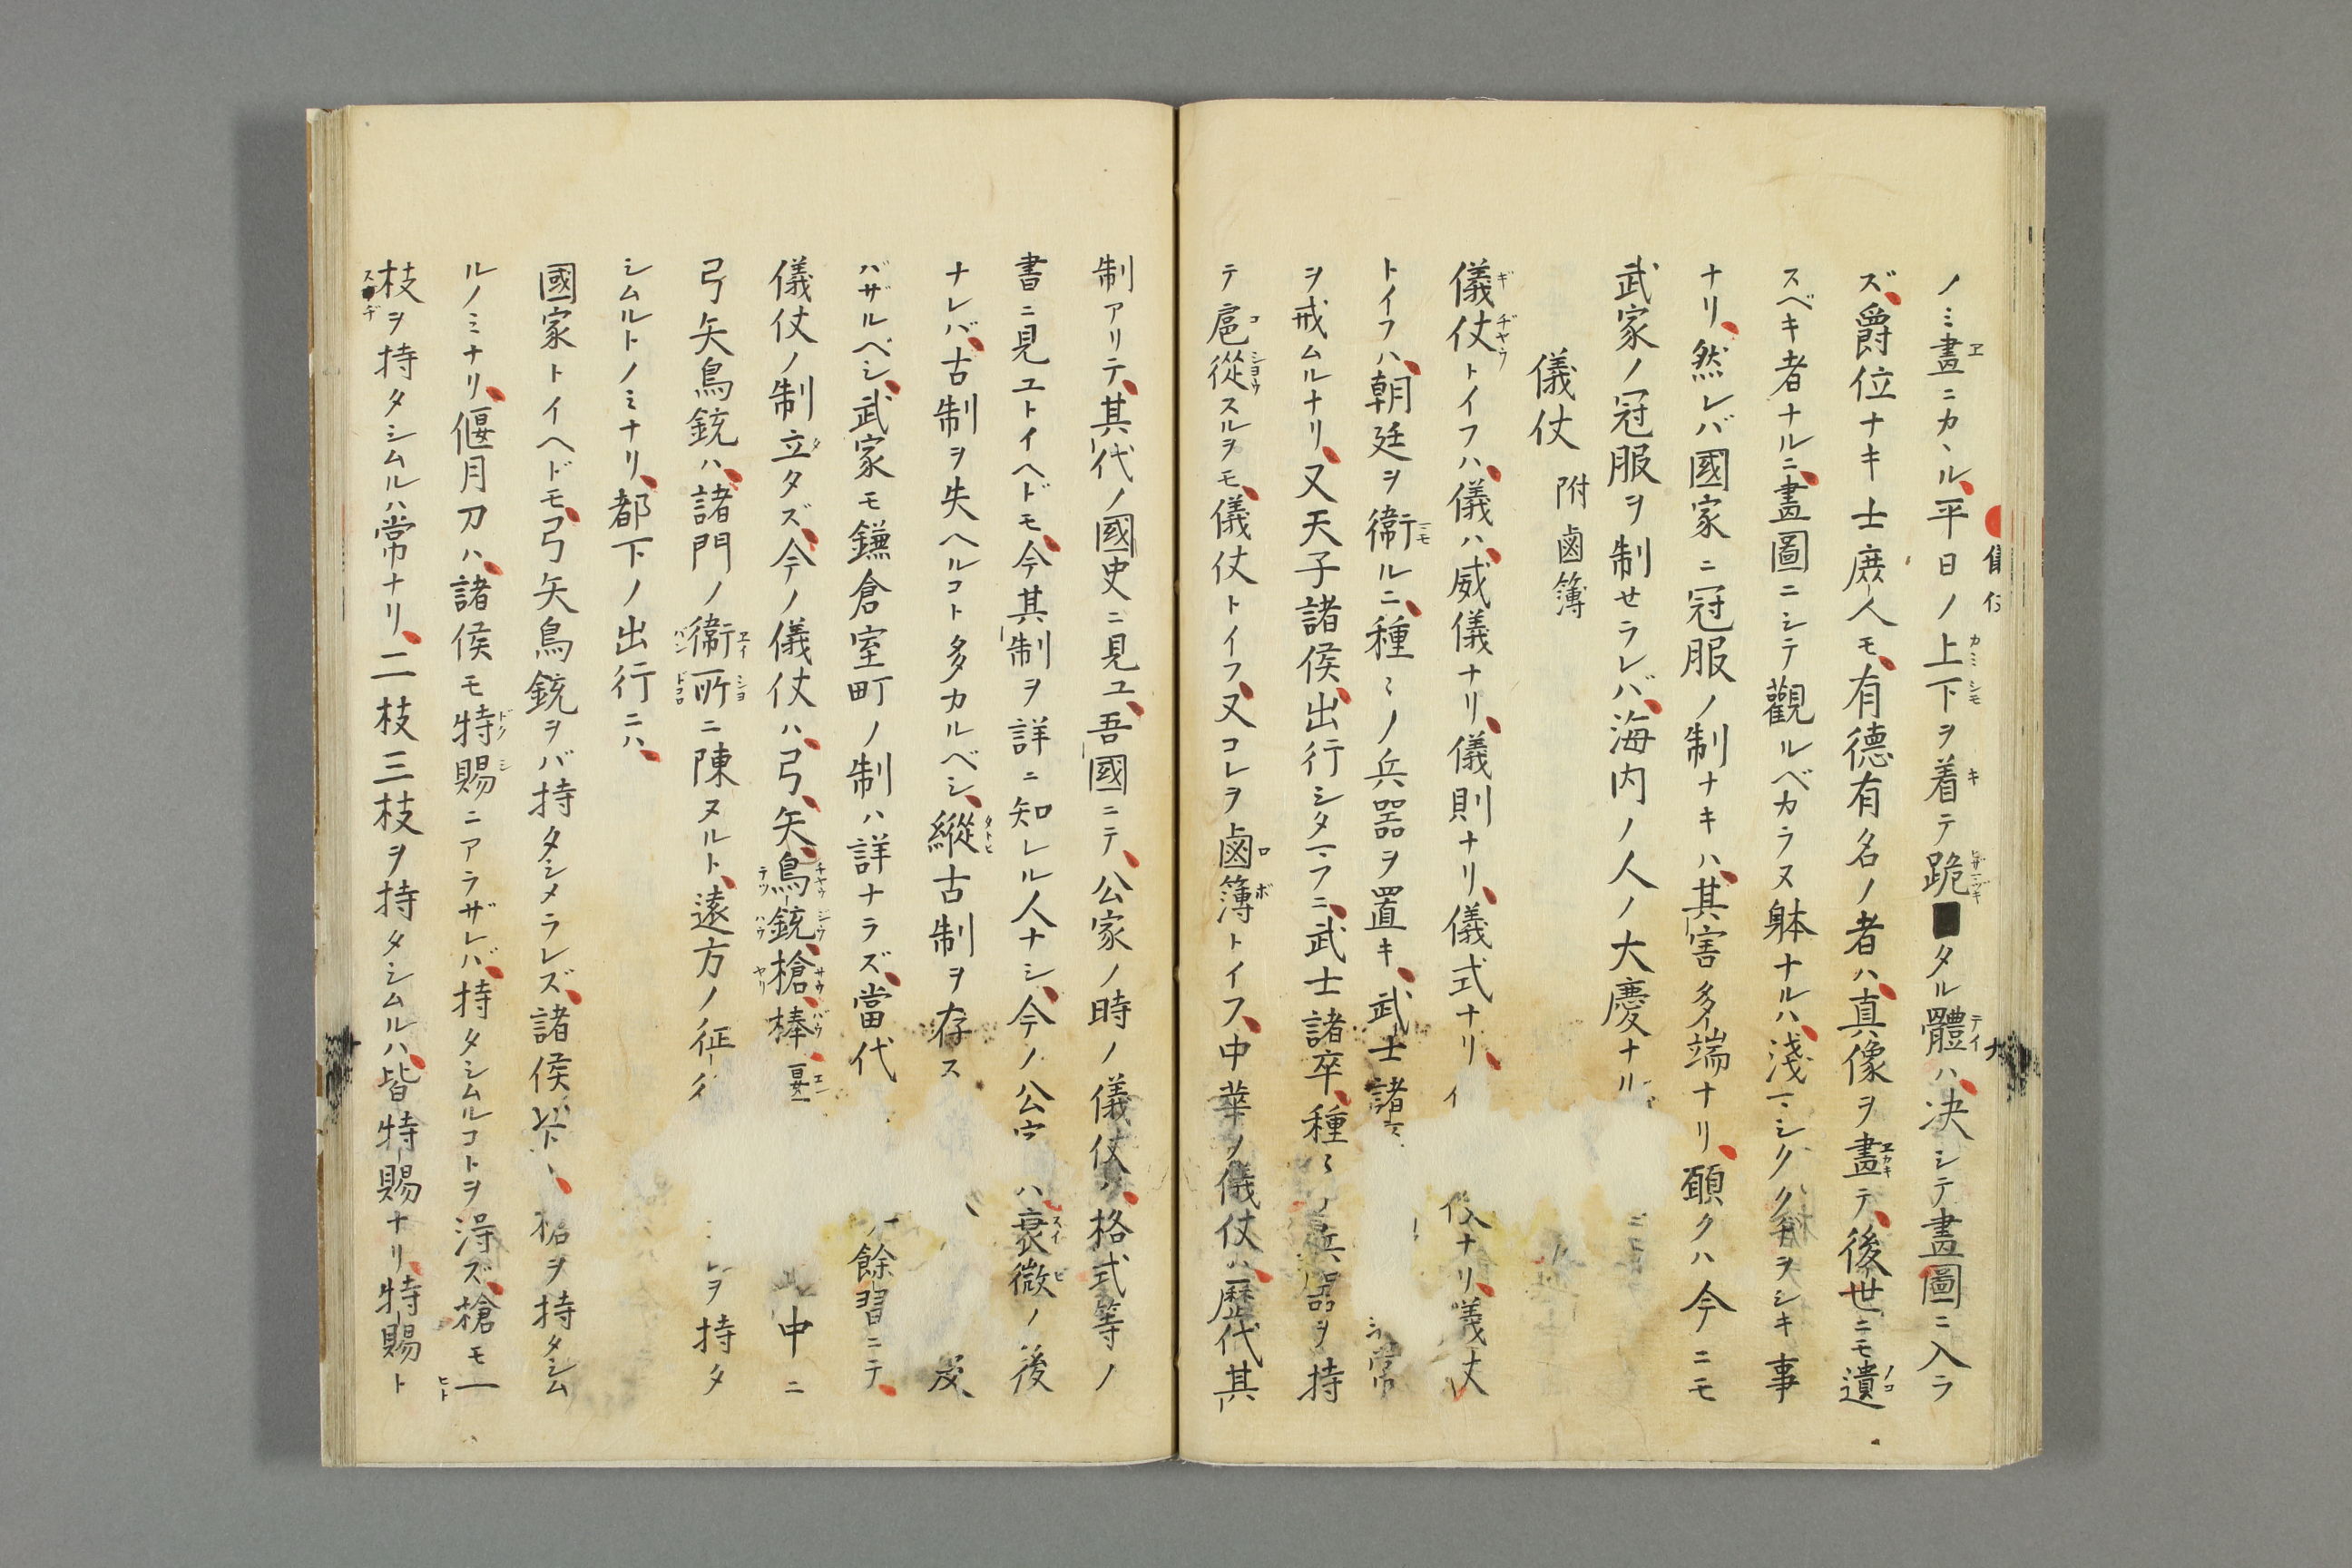 ノミ畫ニカヽル、平日ノ上下ヲ着テ跪タル體ハ、决シテ畫圖ニ入ラ
ズ、爵位ナキ士庶人モ、有德有名ノ者ハ、真像ヲ畫テ、後世ニモ遺
スベキ者ナルニ、畫圖ニシテ觀ルベカラヌ躰ナルハ、淺マシク ヲシキ事
ナリ、然レバ國家ニ冠服ノ制ナキハ、其害多端ナリ、願クハ今ニモ
武家ノ冠服ヲ制セラレバ、海内ノ人ノ大慶ナル
儀仗 附鹵簿
儀仗トイフハ、儀ハ威儀ナリ、儀則ナリ、儀式ナリ、 仗ナリ、儀仗
トイフハ、朝廷ヲ衞ルニ、種〻ノ兵器ヲ置キ、武士諸 常
ヲ戒ムルナリ、又天子諸侯、出行シタマフニ、武士諸卒、種〻ノ兵器ヲ持
テ扈從スルヲモ、儀仗トイフ、又コレヲ鹵簿トイフ、中華ノ儀仗ハ、歷代其
制アリテ、其代ノ國史ニ見ユ、吾國ニテ、公家ノ時ノ儀仗ハ、格式等ノ
書ニ見ユトイヘドモ、今其制ヲ詳ニ知レル人ナシ、今ノ公家ハ、衰微ノ後
ナレバ、古制ヲ失ヘルコト多カルベシ、縱古制ヲ存ス 及
バザルベシ、武家モ鎌倉室町ノ制ハ詳ナラズ、當代 餘習ニテ、
儀仗ノ制立タズ、今ノ儀仗ハ、弓、矢、鳥銃、槍、棒、 中ニ
弓矢鳥銃ハ、諸門ノ衞所ニ陳ヌルト、遠方ノ征 ヲ持タ
シムルトノミナリ、都下ノ出行ニハ、
國家トイヘドモ、弓矢鳥銃ヲバ持タシメラレズ、諸侯以下ハ、 槍ヲ持タシム
ルノミナリ、偃月刀ハ、諸侯モ特賜ニアラザレバ、持タシムルコトヲ得ズ、槍モ一
枝ヲ持タシムルハ常ナリ、二枝三枝ヲ持タシムルハ、皆特賜ナリ、特賜ト